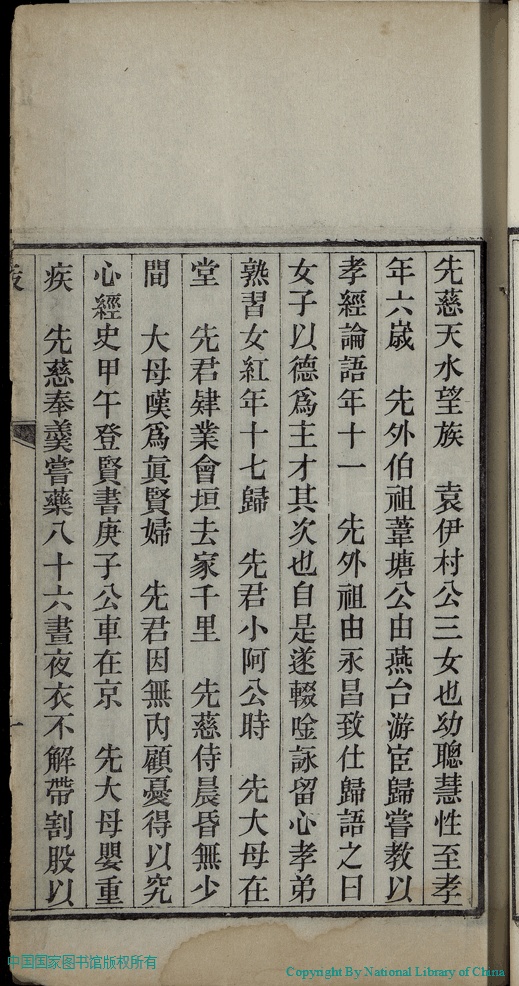 先慈天水望族　袁伊村公三女也幼聰慧性至孝
年六歲　先外伯祖葦塘公由燕台游宦歸嘗教以
孝經論語年十一　先外祖由永昌致仕歸語之曰
女子以德爲主才其次也自是遂輟唫詠留心孝弟
熟習女紅年十七歸　先君小阿公時　先大母在
堂　先君肄業會垣去家千里　先慈侍晨昏無少
間　大母嘆爲眞賢婦　先君因無內顧憂得以究
心經史甲午登賢書庚子公車在京　先大母嬰重
疾　先慈奉羹嘗藥八十六晝夜衣不解帶割股以
一
中国国家图书馆版权所有
Copyright By National Library of China